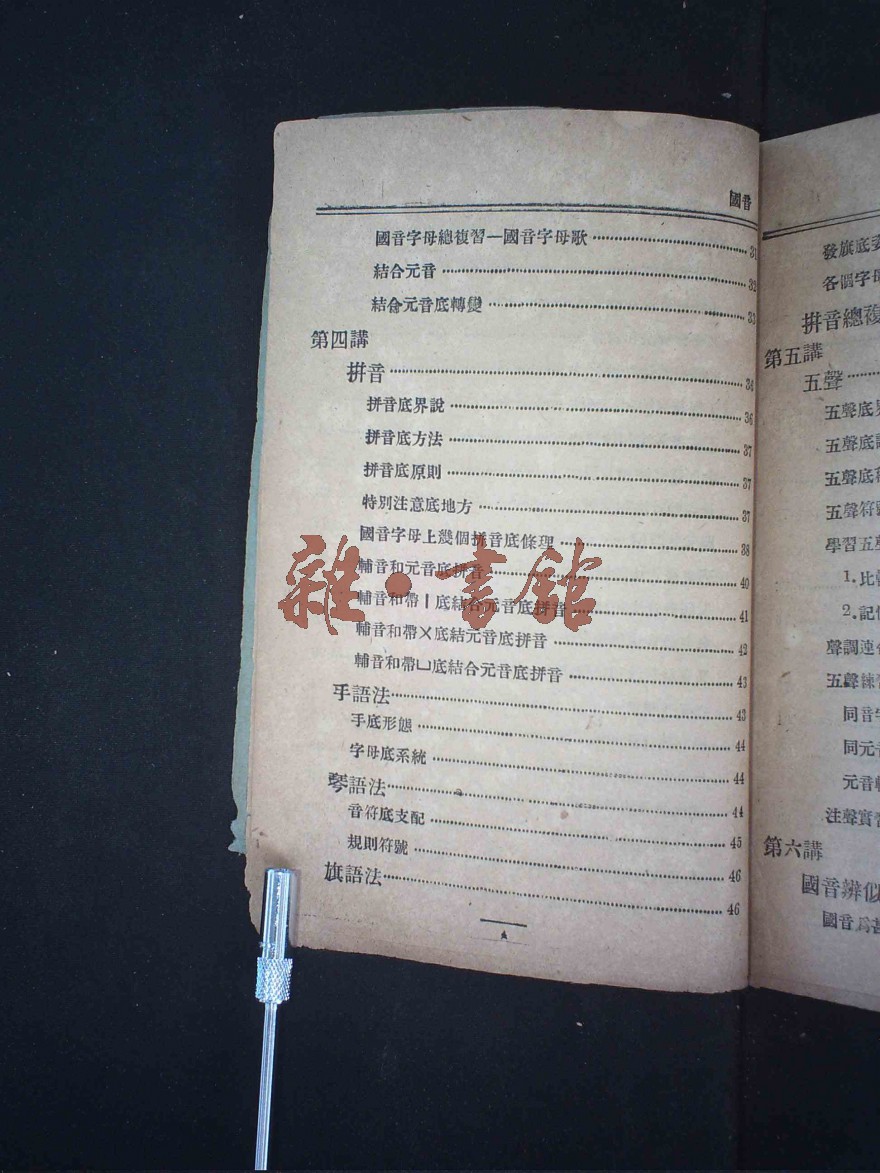 國音
國音字母總複習—國音字母歌 31
結合元音 32
結合元音底轉變 33
第四講
拼音 34
拼音底界說 36
拼音底方法 37
拼音底原則 37
特別注意底地方 37
國音字母上幾個拼音底條理 38
輔音和元音底拼音 40
輔音和帶丨底結合元音底拼音 41
輔音和帶ㄨ底結元音底拼音 42
輔音和帶ㄩ底結合元音底拼音 43
手語法 43
手底形態 44
字母底系統 44
琴語法 44
音符底支配 45
規則符號 46
旗語法 46
雜·書館
發旗底
各個字母
拼音總複
第五講
五聲
五聲底
五聲底
五聲底
五聲符
學習五
1.比
2.記
聲調連
五聲練
同音
同元
元音
注聲實
第六講
國音辨似
國音爲甚